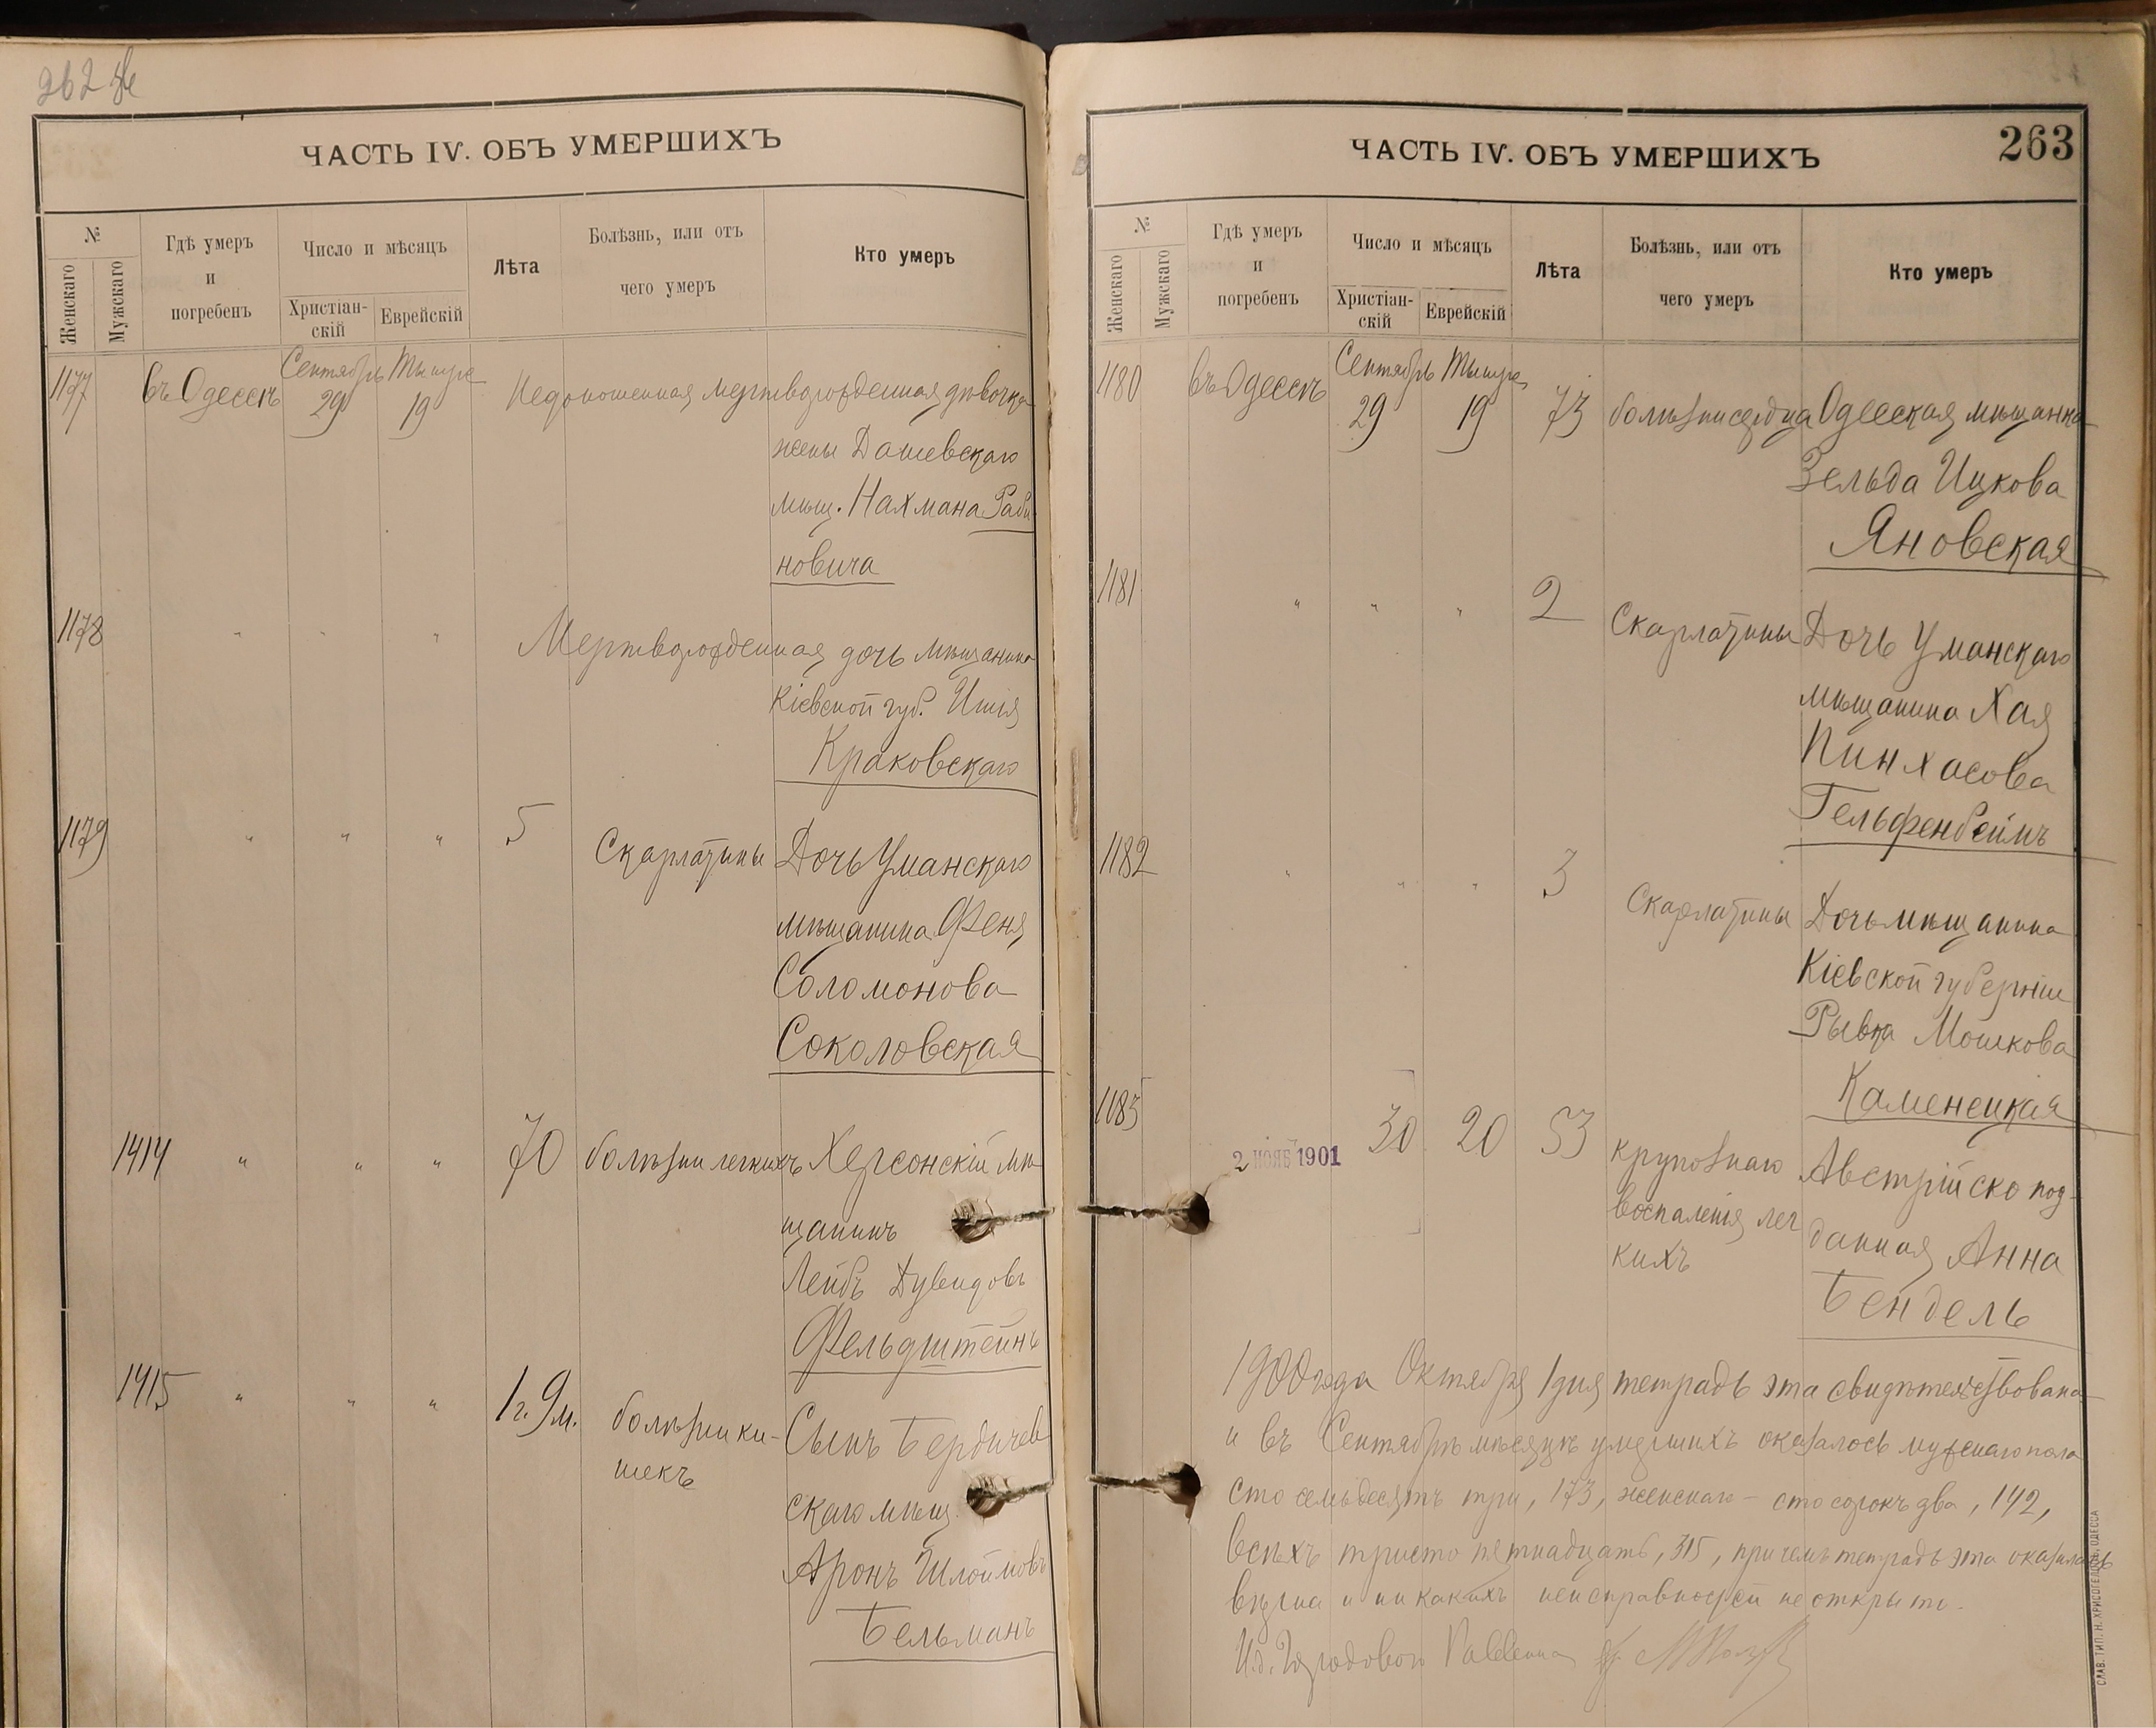 262
ЧАСТЬ IV. ОБЪ УМЕРШИХЪ
№
Женскаго
Мужскаго
Гдѣ умеръ
и
погребенъ
Число и мѣсяцъ
Христіан-
скій
Еврейскій
Лѣта
Болѣзнь, или отъ
чего умеръ
Кто умеръ
Сентябрь Тышре
1177 въ Одессѣ 29 19 Недоношенная мертворожденная дѣвочка
жены Дашевскаго
мѣщ. Нахмана Раби
новича
1178 " " " Мертворожденная дочь мѣщанина
Кіевской губ. Ицки
Краковскаго
1179 " " " 5 Скарлатины Дочь Уманскаго
мѣщанина Феня
Соломонова
Соколовская
1414 " " " 70 болѣзни легкихъ Херсонскій мѣ
щанинъ
Лейбъ Дувидовъ
Фельдштейнъ
1415 " " " 1 г. 9 м. болѣзни ки-
шекъ
Сынъ Бердичев
скаго мѣщ.
Аронъ Шлоймовъ
Бельманъ
ЧАСТЬ IV. ОБЪ УМЕРШИХЪ
263
№
Женскаго
Мужскаго
Гдѣ умеръ
и
погребенъ
Число и мѣсяцъ
Христіан-
скій
Еврейскій
Лѣта
Болѣзнь, или отъ
чего умеръ
Кто умеръ
Сентябрь Тышре
1180 въ Одессѣ 29 19 73 болѣзни сердца Одесская мѣщанка
Зельда Ицкова
Яновская
1181 " " " 2 Скарлатины Дочь Уманскаго
мѣщанина Хая
Пинхасова
Гельфенбеймъ
1182 " " " 3 Скарлатины Дочь мѣщанина
Кіевской губерніи
Рывка Мошкова
Каменецкая
1183 30 20 53 крупознаго
воспаленія лег
кихъ
Австрійско под-
данная Анна
Бендель
2 НОЯБ 1901
1900 года Октября 1 дня тетрадь эта свидѣтельствована
и въ Сентябрѣ мѣсяцѣ умершихъ оказалось мужскаго пола
сто семьдесятъ три, 173, женскаго - сто сорокъ два, 142,
всѣхъ триста пятнадцать, 315, причемъ тетрадь эта оказалась
вѣрна и никакихъ неисправностей не открыто.
И.д. Городового Раввина
СЛАВ. ТИП. Н. ХРИСОГЕЛОСЪ, ОДЕССА